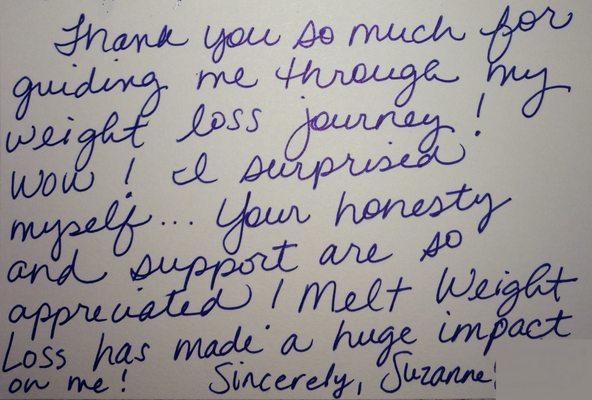 Thank you so much for
guiding me through my
weight loss journey!
Wow! I surprised
myself... Your honesty
and support are so
appreciated! Melt Weight
Loss has made a huge impact
on me! Sincerely, Suzanne